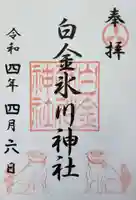 奉拝
白金氷川神社
令和四年四月六日
白金
神社